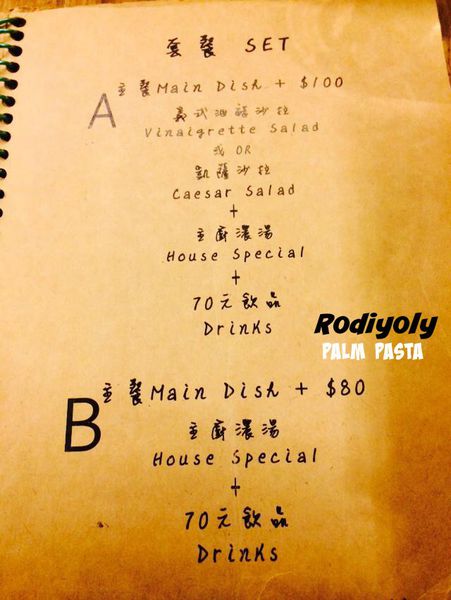 套餐 SET
A
主餐Main Dish + $100
義式油醋沙拉
Vinaigrette Salad
或 OR
凱薩沙拉
Caesar Salad
+
主廚濃湯
House Special
+
70元飲品
Drinks
Rodiyoly
PALM PASTA
B
主餐Main Dish + $80
主廚濃湯
House Special
+
70元飲品
Drinks